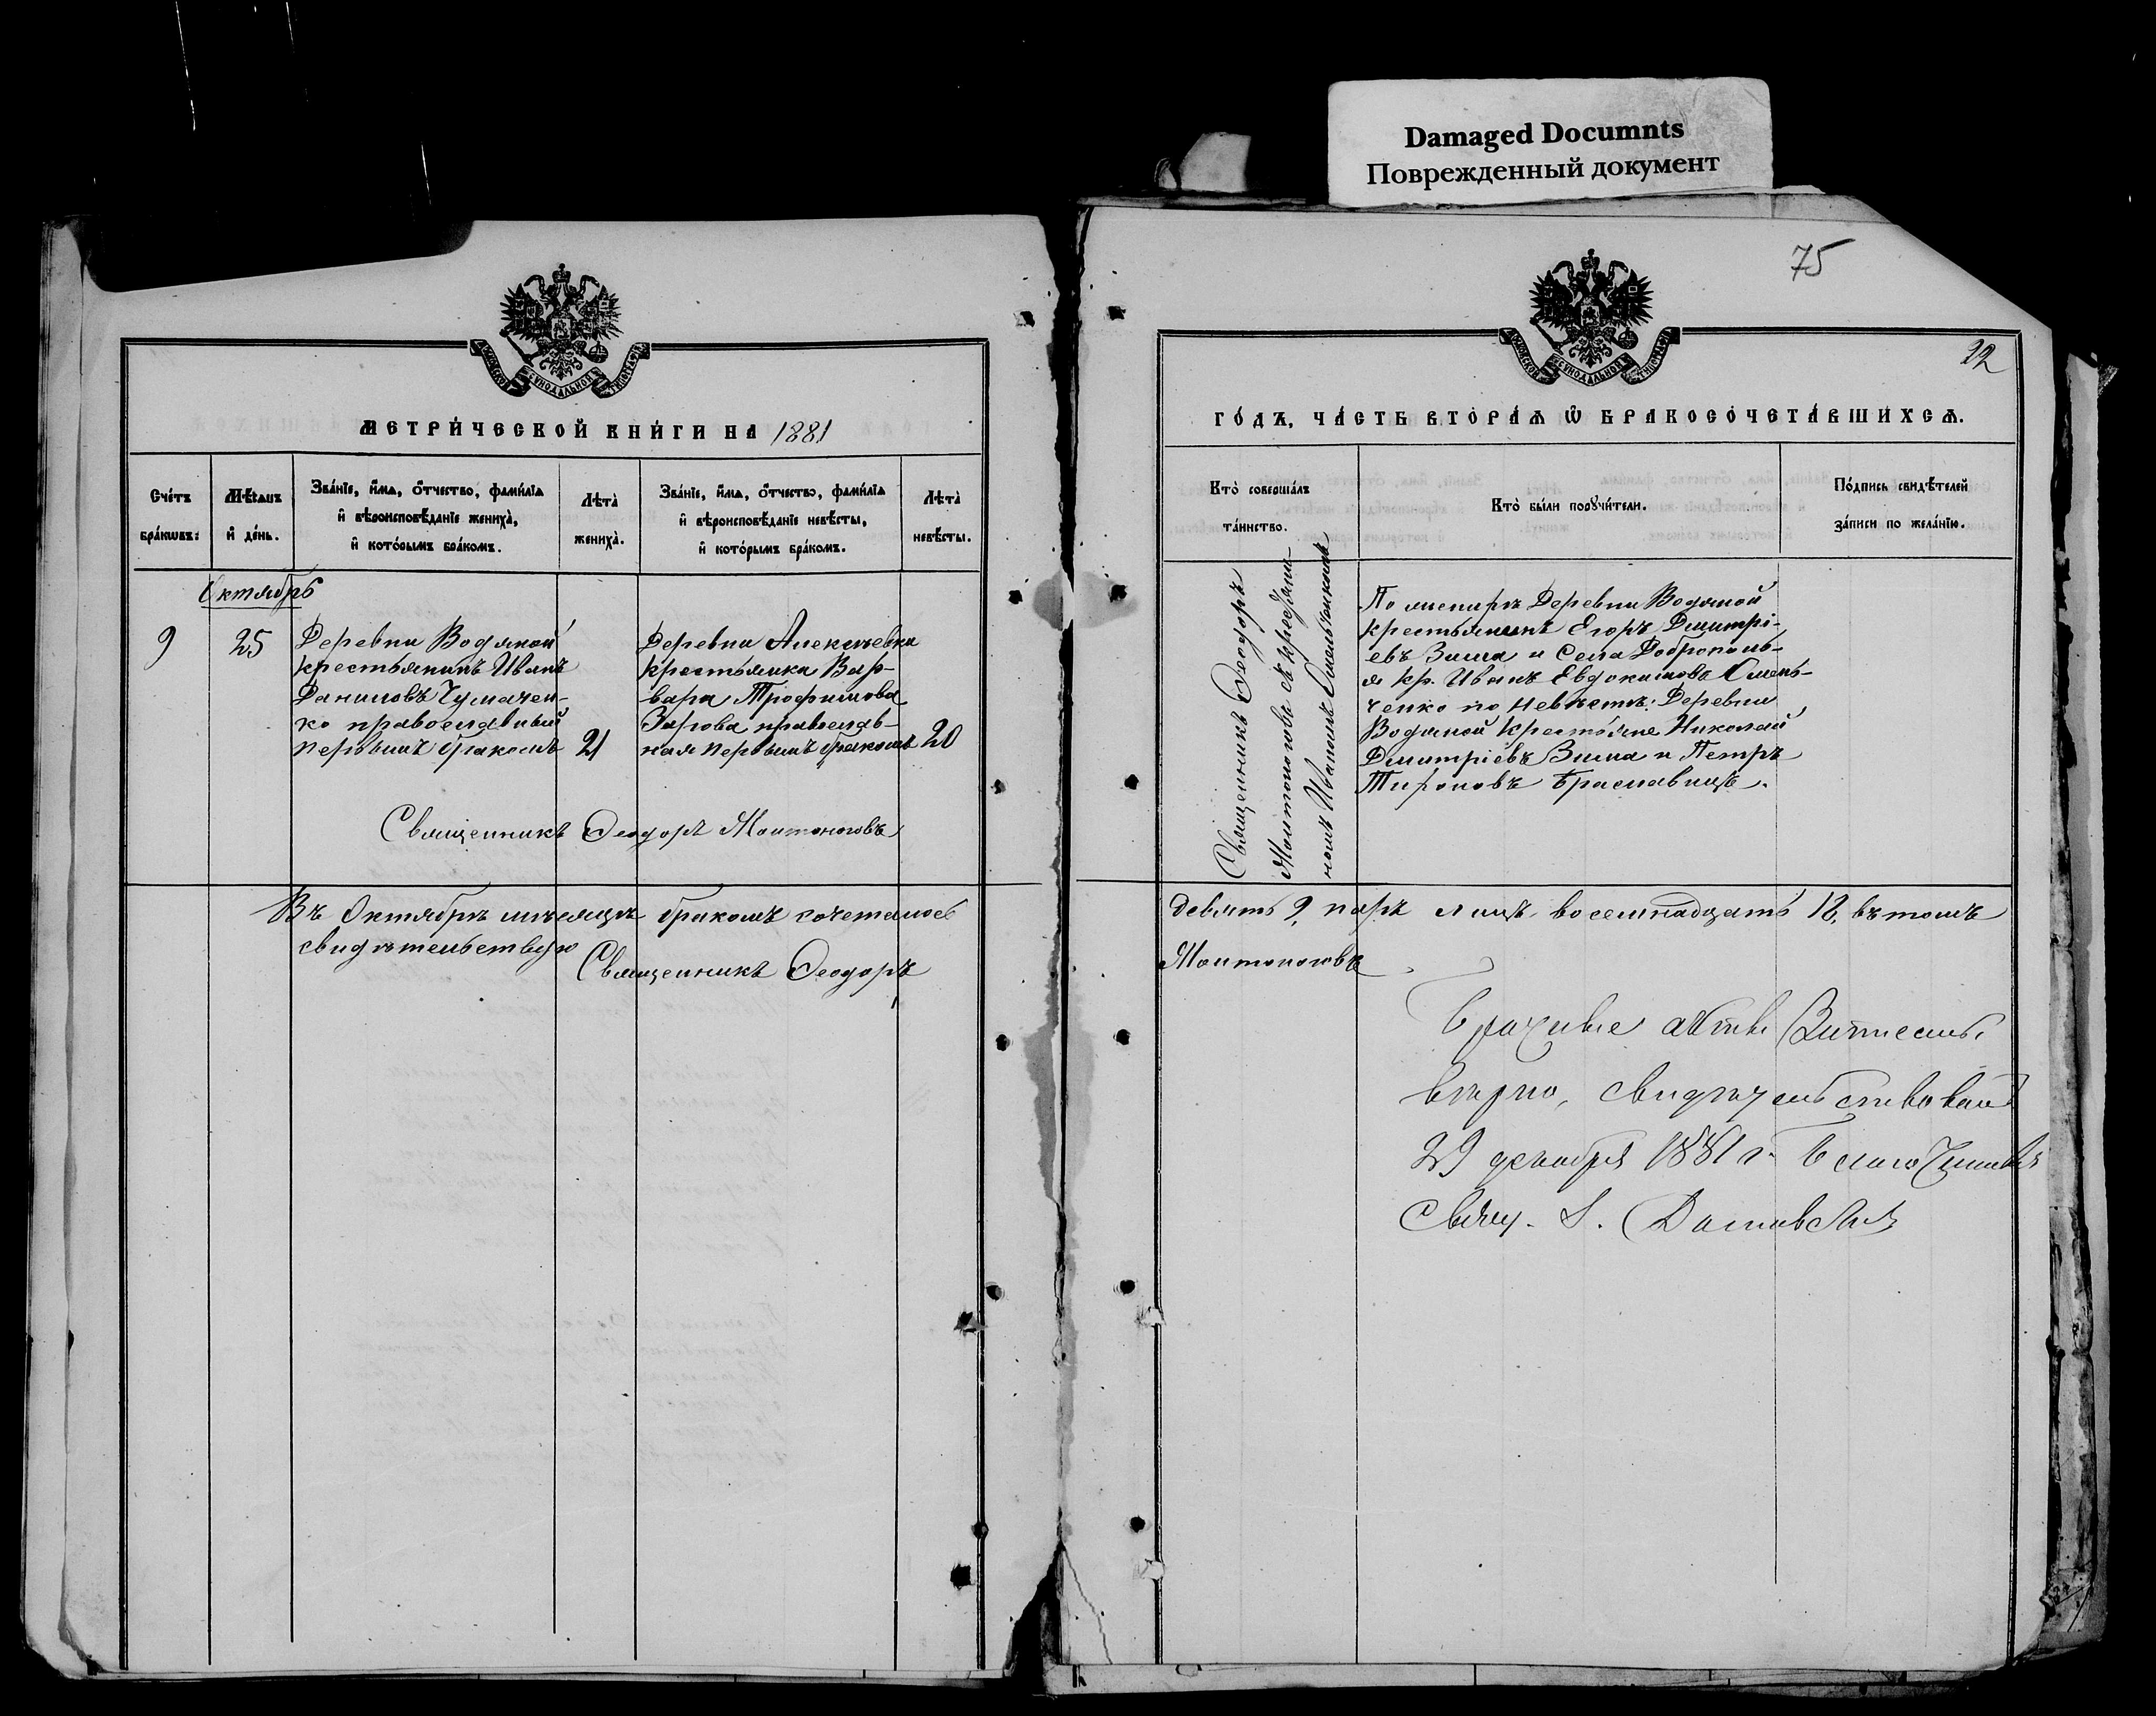 Damaged Documnts
Поврежденный документ
75
22
МЕТРИ́ЧЕСКОЙ КНИ́ГИ НА 1881
Сче́тъ бра́кѡвъ:
Мѣ́сѧцъ и҆ де́нь.
Зва́нїе, и҆́мѧ, ѻ҆́тчество, фами́лїѧ
и҆ вѣроисповѣ́данїе жениха̀,
и҆ кото́рымъ бра́комъ.
Лѣта̀ жениха̀.
Зва́нїе, и҆́мѧ, ѻ҆́тчество, фами́лїѧ
и҆ вѣроисповѣ́данїе невѣ́сты,
и҆ кото́рымъ бра́комъ.
Лѣта̀ невѣ́сты.
Октябрь
9
25
Деревни Водяной
крестьянинъ Иванъ
Даниловъ Чумачен-
ко православный
первымъ бракомъ
21
Деревни Алексѣевки
крестьянка Вар-
вара Трофимова
православ-
ная первымъ бракомъ
20
Священникъ Ѳеодоръ
Въ Октябрѣ мѣсяцѣ бракомъ сочеталось
свидѣтельствую
Священникъ Ѳеодоръ
ГО́ДЪ, ЧА́СТЬ ВТОРА́Ѧ Ѡ҆ БРАКОСОЧЕТА́ВШИХСѦ.
Кто̀ соверша́лъ
та́инство.
Кто̀ бы́ли порꙋчи́тели.
По́дпись свидѣ́телей
за́писи по жела́нїю.
Священникъ Ѳеодоръ
съ
номъ Иваномъ
По женихѣ Деревни Водяной
крестьянинъ Егоръ Дмитрі-
евъ Зима и Села Доброполь-
я кр. Иванъ Евдокимовъ Омель-
ченко по невѣстѣ: Деревни
Водяной крестьяне Николай
Дмитріевъ Зима и Петръ
Браславецъ.
девять 9, паръ лицъ восемнадцать 18, въ томъ
акты
вѣрно, свидѣтельствовалъ
29 декабря 1881 г. Благочинный
Свящ.